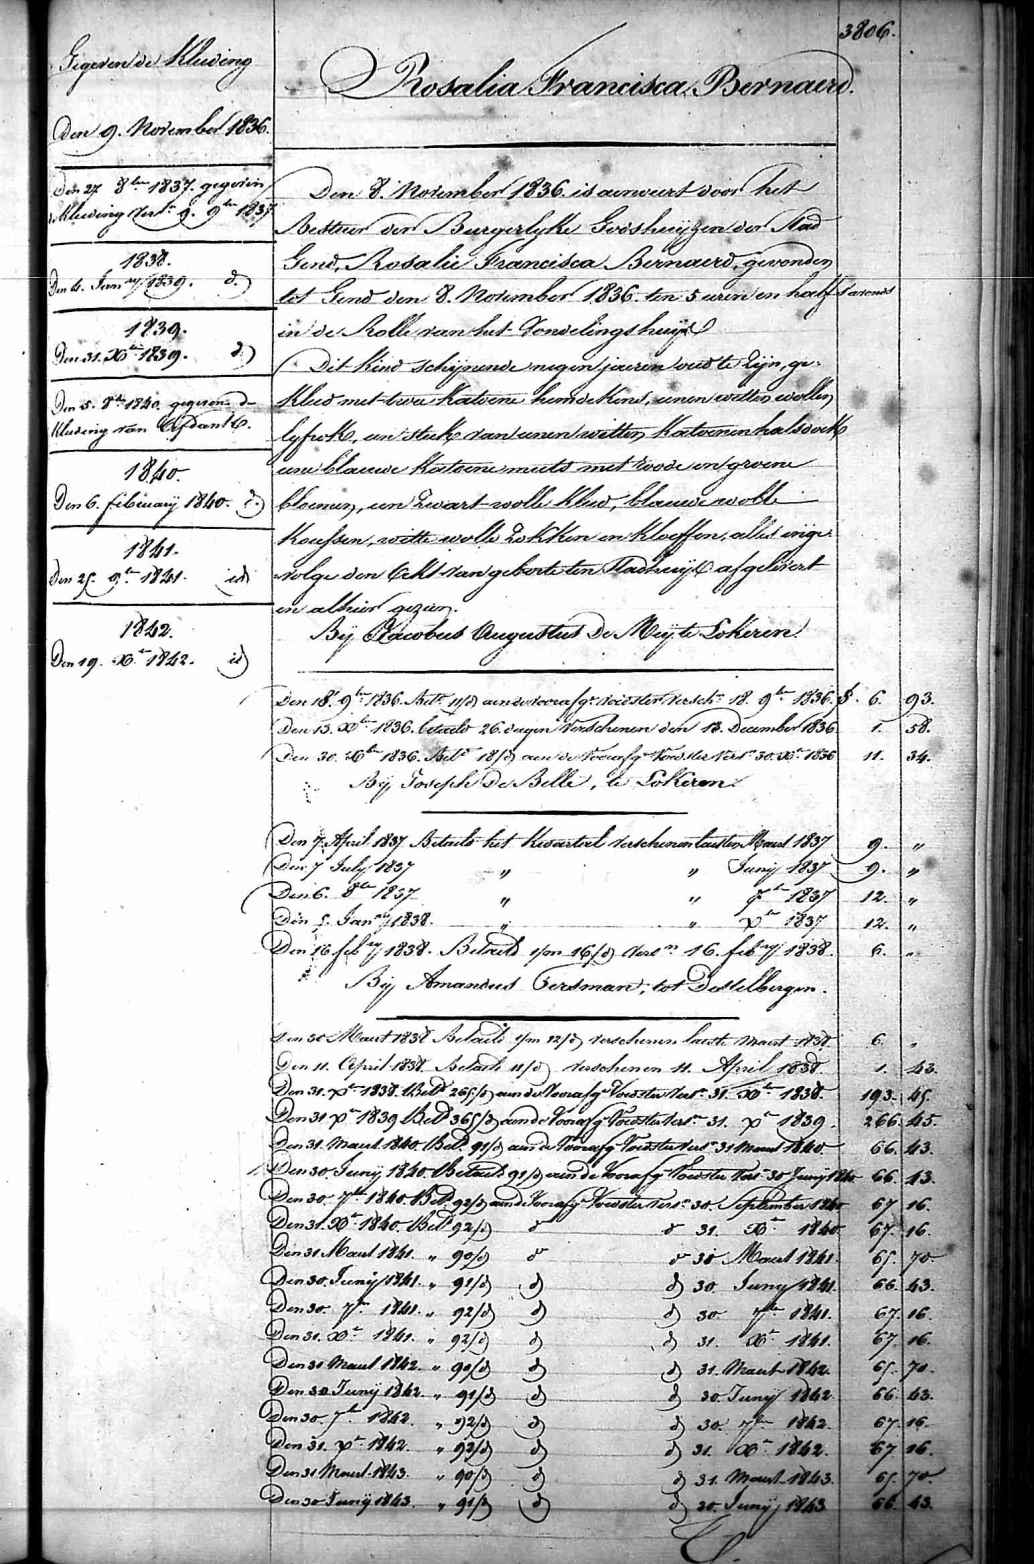 3806.
Rosalia Francisca Bernaerd.
Gegeven de Kleeding
Den 9. November 1836.
Den 27 8ber 1837. gegeven
Kleeding 9. 9ber 1837
1838.
Den 4. Janry 1839. d.
1839.
Den 31. Xber 1839. d.
Den 5. 8ber 1840. gegeven de
Kleeding van
1840.
Den 6. februarij 1840. d.
1841.
Den 25. 9er 1841. id
1842.
Den 19. Xr 1842. id
Den 8. November 1836. is aenveert door het
Bestier der Burgerlyke Godshuijzen der Stad
Gend, Rosalie Francisca Bernaerd, gevonden
tot Gend den 8. November 1836. ten 5 uren en half s'avonds
in de Rolle van het Vondelingshuijs
Dit Kind schijnende negen jaeren oud te zijn, ge-
kleed met twee katoene hemdekens, eenen witten wollen
lyfrok, een stuk van eenen witten katoenen halsdoek
eene blauwe katoene muts met roode en groene
bloemen, een zwart wolle kleed, blauwe wolle
koussen, witte wolle zokken en kloeffen, alles inge-
volge den Ackt van geboorte ten Stadhuijse afgelevert
en alhier gezien.
Bij Jacobus Augustus De Meij te Lokeren.
Den 18. 9ber 1836. Betd 11/d aen de voorafge voedster versche 18. 9ber 1836. f. 6. 93.
Den 13. Xber 1836. betaeld 26. dagen verschenen den 13. December 1836 1. 58.
Den 30. Xber 1836. Betd 18/d aen de voorafge voedster versn 30. Xr 1836 11. 34.
Bij Joseph De Belle, te Lokeren.
Den 7. April 1837 Betaeld het Kwartael verschenen laesten Maert 1837 9. "
Den 7 July 1837 " " Junij 1837 9. "
Den 6. 8ber 1837 " " 7br 1837 12. "
Den 5. Janry 1838. " " Xber 1837 12. "
Den 16 febry 1838. Betaeld 1/m 16/d versn 16. febry 1838. 6. "
Bij Amandus Eersman, tot Destelbergen.
Den 30 Maert 1838 Betaeld 1/m 12/d verschenen laeste Maert 1838 6. "
Den 11. April 1838. Betaeld 11/d verschenen 11. April 1838. 1. 43.
Den 31. Xr 1838. Betd 265/d aen de voorafge Voedster versn 31. Xber 1838. 193. 45.
Den 31 Xr 1839 Betd 365/d aen de Voorafge Voedster versn 31. Xr 1839. 266. 45.
Den 31. Maert 1840. Betd 91/d aen de Voorafge Voedster versn 31 Maert 1840. 66. 43.
Den 30 Junij 1840. Betaeld 91/d aen de Voorafge Voedster versn 30 Junij 1840 66. 43.
Den 30. 7br 1840. Betd 92/d aen de Voorafge Voedster versn 30. September 1840 67 16.
Den 31. Xbr 1840. Betd 92/d d d 31. Xr 1840 67. 16.
Den 31 Maert 1841. " 90/d d d 30 Maert 1841. 65. 70.
Den 30. Junij 1841. " 91/d d d 30. Junij 1841 66. 43.
Den 30. 7br 1841. " 92/d d d 30. 7br 1841. 67. 16.
Den 31. Xr 1841. " 92/d d d 31. Xr 1841. 67. 16.
Den 31 Maert 1842. " 90/d d d 31. Maert 1842. 65. 70.
Den 30 Junij 1842. " 91/d d d 30. Junij 1842 66. 43.
Den 30. 7br 1842. " 92/d d d 30. 7br 1842. 67. 16.
Den 31. Xr 1842. " 92/d d d 31. Xr 1842. 67 16.
Den 31 Maert 1843. " 90/d d d 31. Maert 1843. 65. 70.
Den 30 Junij 1843. " 91/d d d 30. Junij 1843 66. 43.